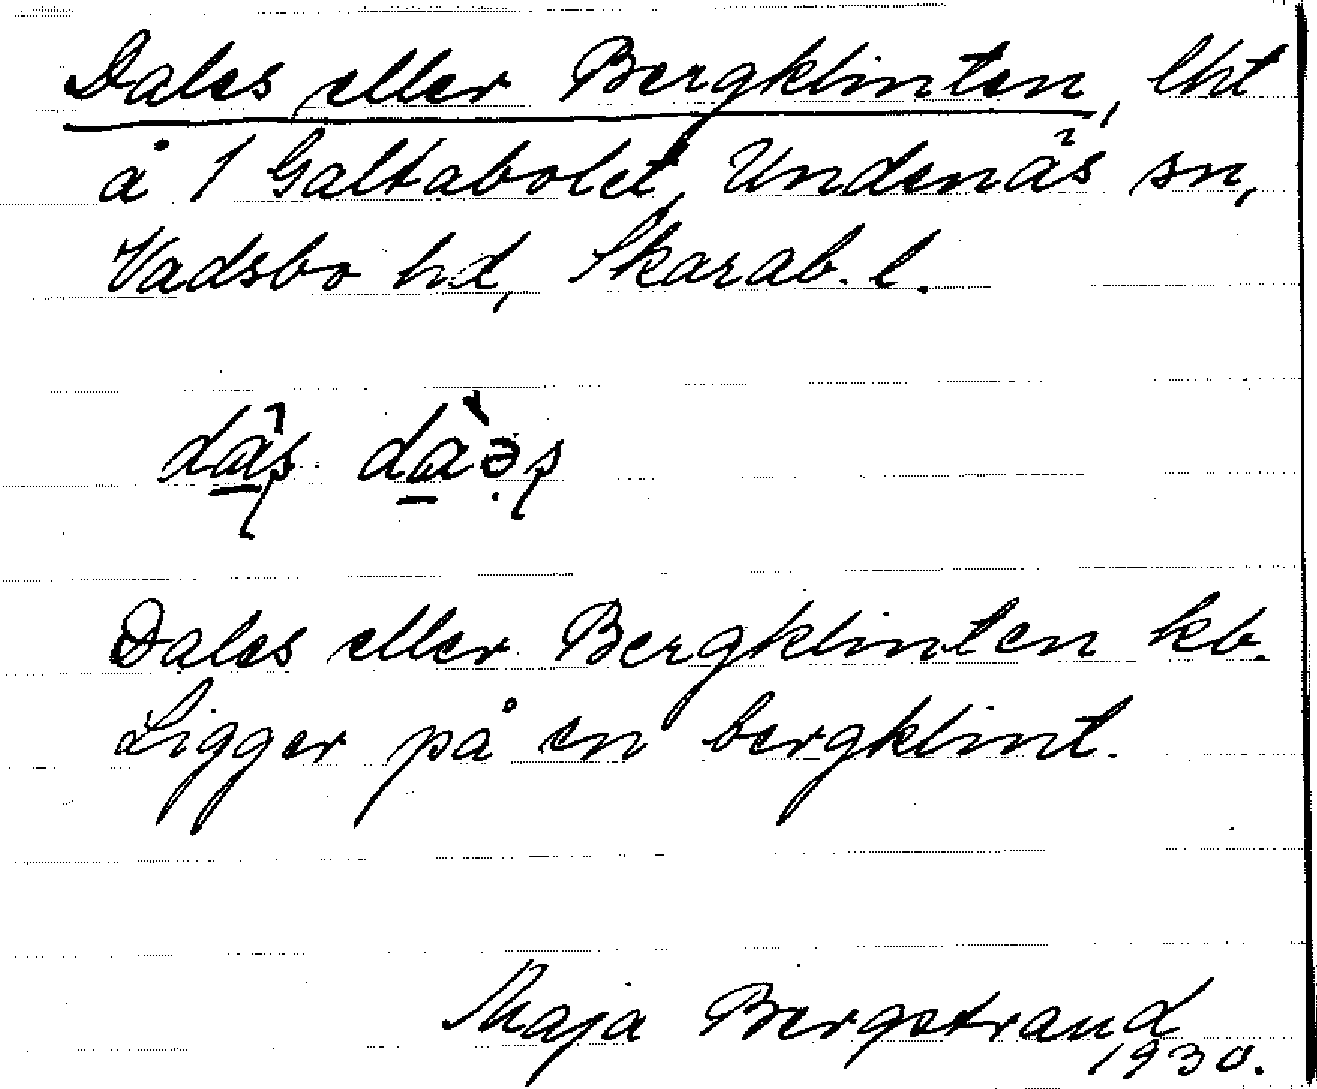 Dales eller Bergklinten, lht
å 1 Galtabolet, Undenäs sn,
Vadsbo hd, Skarab. l.
Dales eller Bergklinten kb.
Ligger på en bergklint.
Maja Bergstrand
1930.